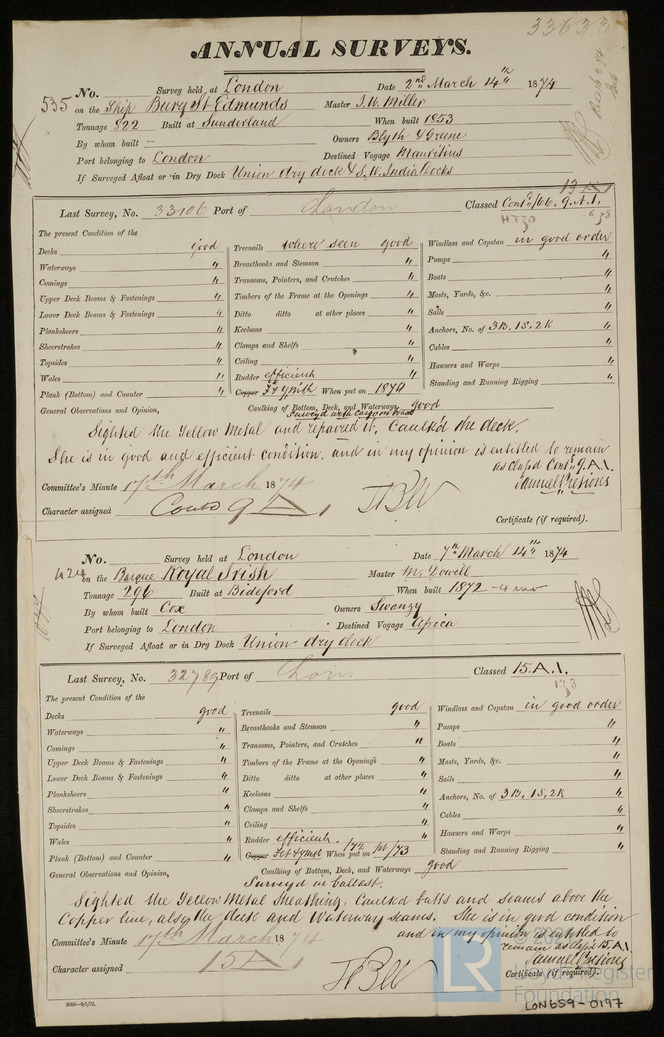 33633
ANNUAL SURVEYS.
No. 535 Survey held at London Date 2nd March 14th 1874
on the Ship Bury St Edmunds Master J. W. Miller
Tonnage 822 Built at Sunderland When built 1853
By whom built — Owners Blyth & Greene
Port belonging to London Destined Voyage Mauritius
If Surveyed Afloat or in Dry Dock Union dry dock & S. W. India Docks
13 A 1
Last Survey, No. 33106 Port of London Classed Contd /66. 9. A.1.
The present Condition of the
Decks good
Waterways "
Comings "
Upper Deck Beams & Fastenings "
Lower Deck Beams & Fastenings "
Planksheers "
Sheerstrakes "
Topsides "
Wales "
Plank (Bottom) and Counter "
Treenails where seen good
Breasthooks and Stemson "
Transoms, Pointers, and Crutches "
Timbers of the Frame at the Openings "
Ditto ditto at other places "
Keelsons "
Clamps and Shelfs "
Ceiling "
Rudder efficient "
Copper F & YM When put on 1874
Caulking of Bottom, Deck, and Waterways good
Windlass and Capstan in good order
Pumps "
Boats "
Masts, Yards, &c. "
Sails "
Anchors, No. of 3B. 1S. 2K "
Cables "
Hawsers and Warps "
Standing and Running Rigging "
General Observations and Opinion, Surveyd with cargo on board
Sighted the Yellow Metal and repaired it. Caulk'd the deck.
She is in good and efficient condition, and in my opinion is entitled to remain
as class'd Contd 9. A.1.
Samuel Pretious
Committee's Minute 17th March 1874
Character assigned Contd 9 A 1
Certificate (if required).
No. Survey held at London Date 7th March 14th 1874
on the Barque Royal Irish Master McDowell
Tonnage 296 Built at Bideford When built 1872 - 4 mo
By whom built Cox Owners Swanzy
Port belonging to London Destined Voyage Africa
If Surveyed Afloat or in Dry Dock Union dry dock
Last Survey, No. 32789 Port of Lon: Classed 15. A. 1.
The present Condition of the
Decks good
Waterways "
Comings "
Upper Deck Beams & Fastenings "
Lower Deck Beams & Fastenings "
Planksheers "
Sheerstrakes "
Topsides "
Wales "
Plank (Bottom) and Counter "
Treenails good
Breasthooks and Stemson "
Transoms, Pointers, and Crutches "
Timbers of the Frame at the Openings "
Ditto ditto at other places "
Keelsons "
Clamps and Shelfs "
Ceiling "
Rudder efficient.
Copper When put on
Caulking of Bottom, Deck, and Waterways good
Windlass and Capstan in good order
Pumps "
Boats "
Masts, Yards, &c. "
Sails "
Anchors, No. of 3B. 1S. 2K "
Cables "
Hawsers and Warps "
Standing and Running Rigging "
General Observations and Opinion, Surveyd in ballast.
Sighted the Yellow Metal Sheathing. Caulked butts and seams above the
Copper line, also the deck and Waterway seams. She is in good condition
and in my opinion is entitled to
remain as class'd 15. A.1.
Samuel Pretious
Committee's Minute 17th March 1874
Character assigned 15 A 1
Certificate (if required).
LR
Lloyd's Register
Foundation
LON659-0197